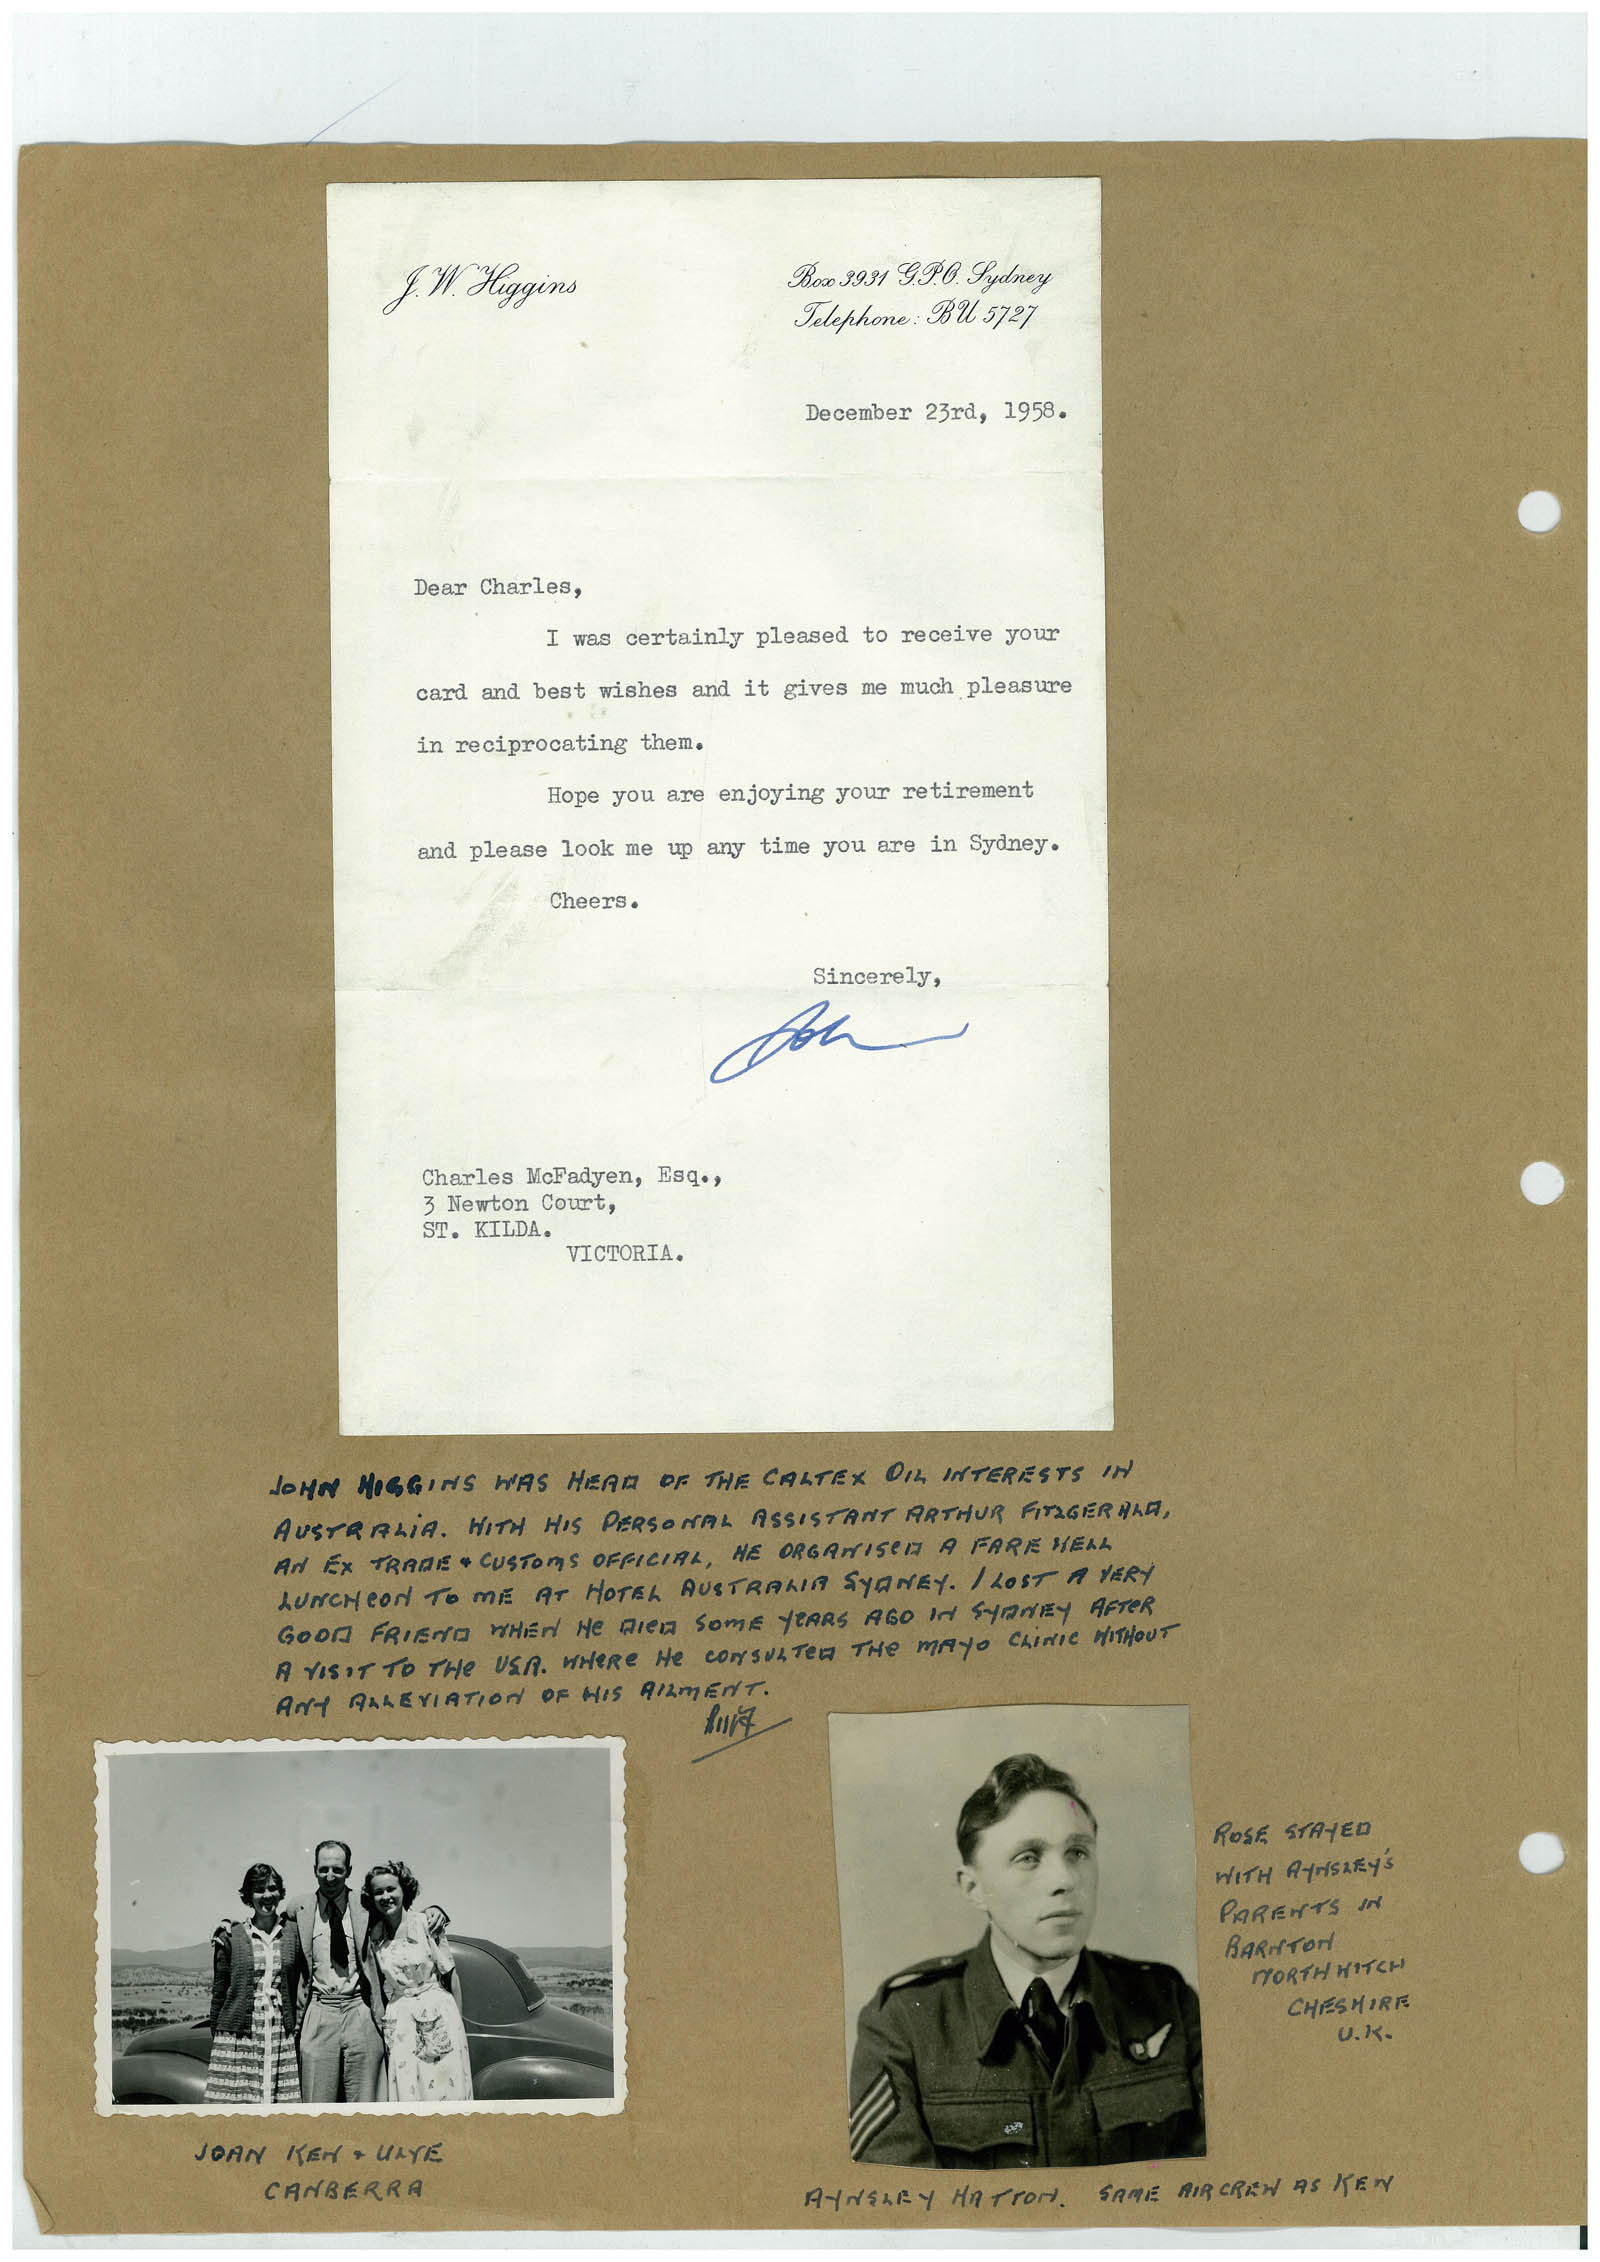 J. W. Higgins
Box 3931 G.P.O. Sydney
Telephone: BU 5727
December 23rd, 1958.
Dear Charles,
I was certainly pleased to receive your
card and best wishes and it gives me much pleasure
in reciprocating them.
Hope you are enjoying your retirement
and please look me up any time you are in Sydney.
Cheers.
Sincerely,
John
Charles McFadyen, Esq.,
3 Newton Court,
ST. KILDA.
VICTORIA.
JOHN HIGGINS WAS HEAD OF THE CALTEX OIL INTERESTS IN
AUSTRALIA. WITH HIS PERSONAL ASSISTANT ARTHUR FITZGERALD,
AN EX TRADE + CUSTOMS OFFICIAL, HE ORGANISED A FAREWELL
LUNCHEON TO ME AT HOTEL AUSTRALIA SYDNEY. I LOST A VERY
GOOD FRIEND WHEN HE DIED SOME YEARS AGO IN SYDNEY AFTER
A VISIT TO THE USA. WHERE HE CONSULTED THE MAYO CLINIC WITHOUT
ANY ALLEVIATION OF HIS AILMENT.
JOAN KEN + ULVE
CANBERRA
ROSE STAYED
WITH AYNSLEY'S
PARENTS IN
BARNTON
NORTHWITCH
CHESHIRE
U.K.
AYNSLEY HATTON. SAME AIRCREW AS KEN